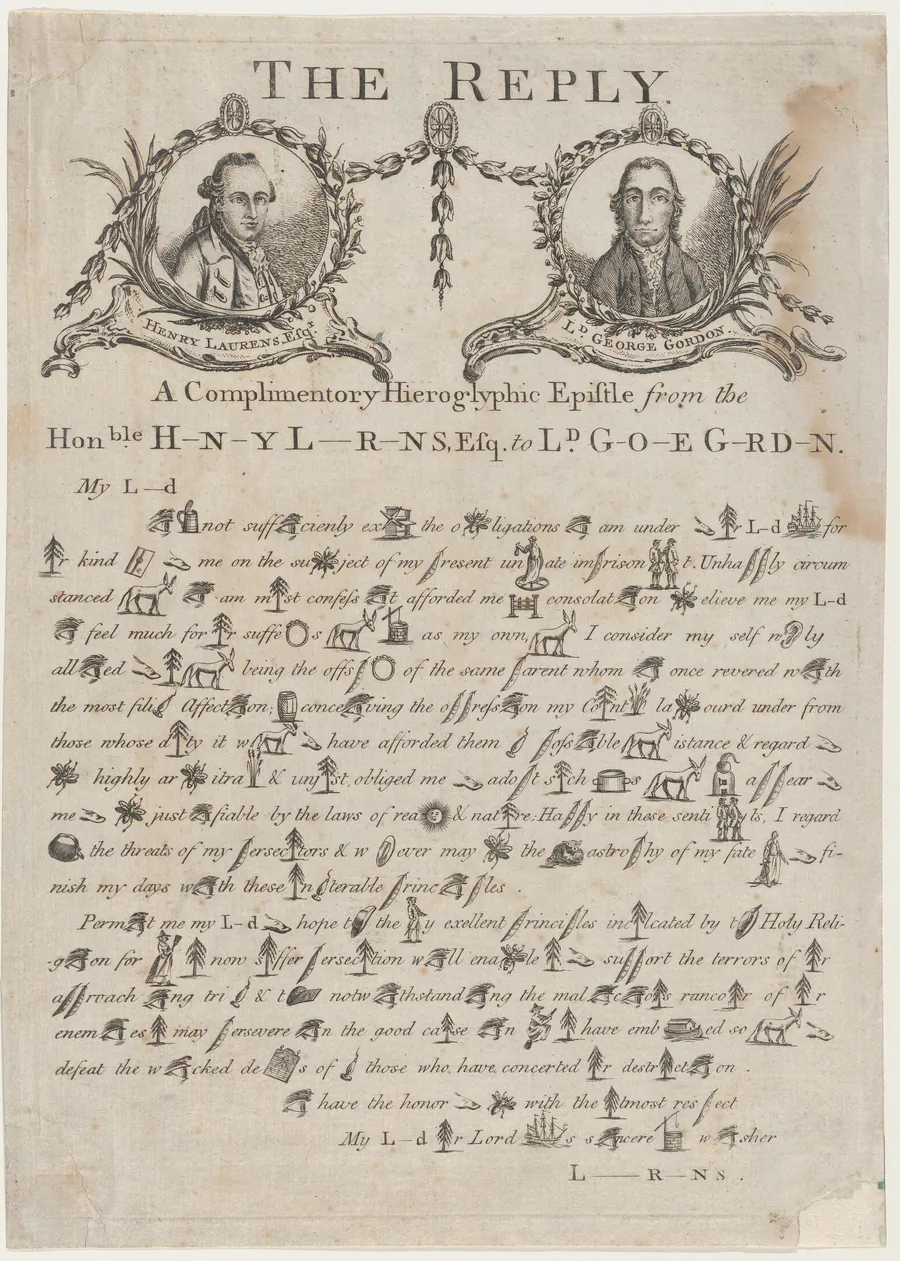 THE REPLY.
HENRY LAURENS, Eſqr.
LD. GEORGE GORDON.
A Complimentory Hieroglyphic Epiſtle from the
Honble H–N–Y L—R–NS, Eſq. to LD. G–O–E G–RD–N.
My L—d
not suff cienly ex the o ligations am under r L–d for
r kind me on the su ject of my resent un ate im rison t. Unha ly circum
stanced am m st confeſs t afforded me consolat on elieve me my L–d
feel much for r suffe s as my own, I consider my self n ly
all ed being the offs of the same arent whom once revered w th
the most fili Affect on; conce ving the o reſs on my Co nt la ourd under from
those whose d ty it w have afforded them oſs ble istance & regard
highly ar itra & unj st, obliged me ado t s ch s a ear
me just fiable by the laws of rea & nat re: Ha y in these senti ts, I regard
the threats of my ersec tors & w ever may the astro hy of my fate fi-
nish my days w th these n terable rinc les .
Perm t me my L–d hope t the y exellent rinci les inc lcated by t Holy Reli-
-g on for now s ffer ersec tion w ll ena le su ort the terrors of r
a roach ng tri & t notw thstand ng the mal c o s ranco r of r
enem es may ersevere n the good ca se n have emb ed so
defeat the w cked de s of those who have concerted r destr ct on .
have the honor with the tmost res ect
My L–d r Lord s s ncere w sher
L——R–NS .